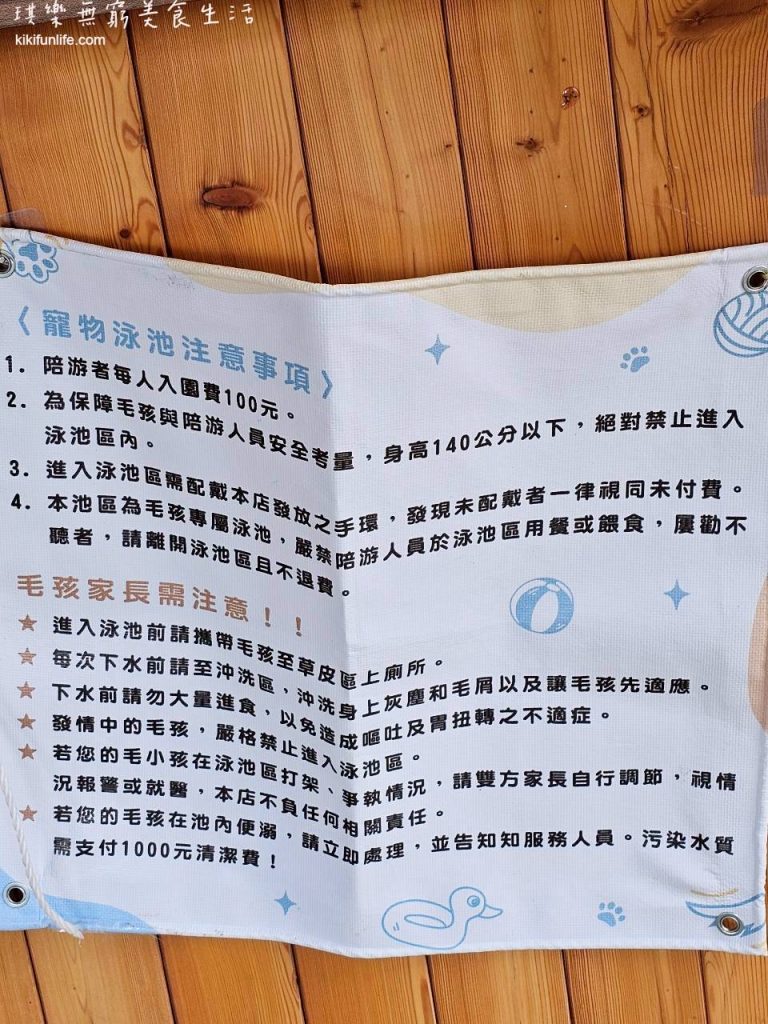 琪樂無窮美食生活
kikifunlife.com
〈寵物泳池注意事項〉
1. 陪游者每人入園費100元。
2. 為保障毛孩與陪游人員安全考量,身高140公分以下,絕對禁止進入
泳池區內。
3. 進入泳池區需配戴本店發放之手環,發現未配戴者一律視同未付費。
4. 本池區為毛孩專屬泳池,嚴禁陪游人員於泳池區用餐或餵食,屢勸不
聽者,請離開泳池區且不退費。
毛孩家長需注意!!
★ 進入泳池前請攜帶毛孩至草皮區上廁所。
★ 每次下水前請至沖洗區,沖洗身上灰塵和毛屑以及讓毛孩先適應。
★ 下水前請勿大量進食,以免造成嘔吐及胃扭轉之不適症。
★ 發情中的毛孩,嚴格禁止進入泳池區。
★ 若您的毛小孩在泳池區打架、爭執情況,請雙方家長自行調節,視情
況報警或就醫,本店不負任何相關責任。
★ 若您的毛孩在池內便溺,請立即處理,並告知知服務人員。污染水質
需支付1000元清潔費!